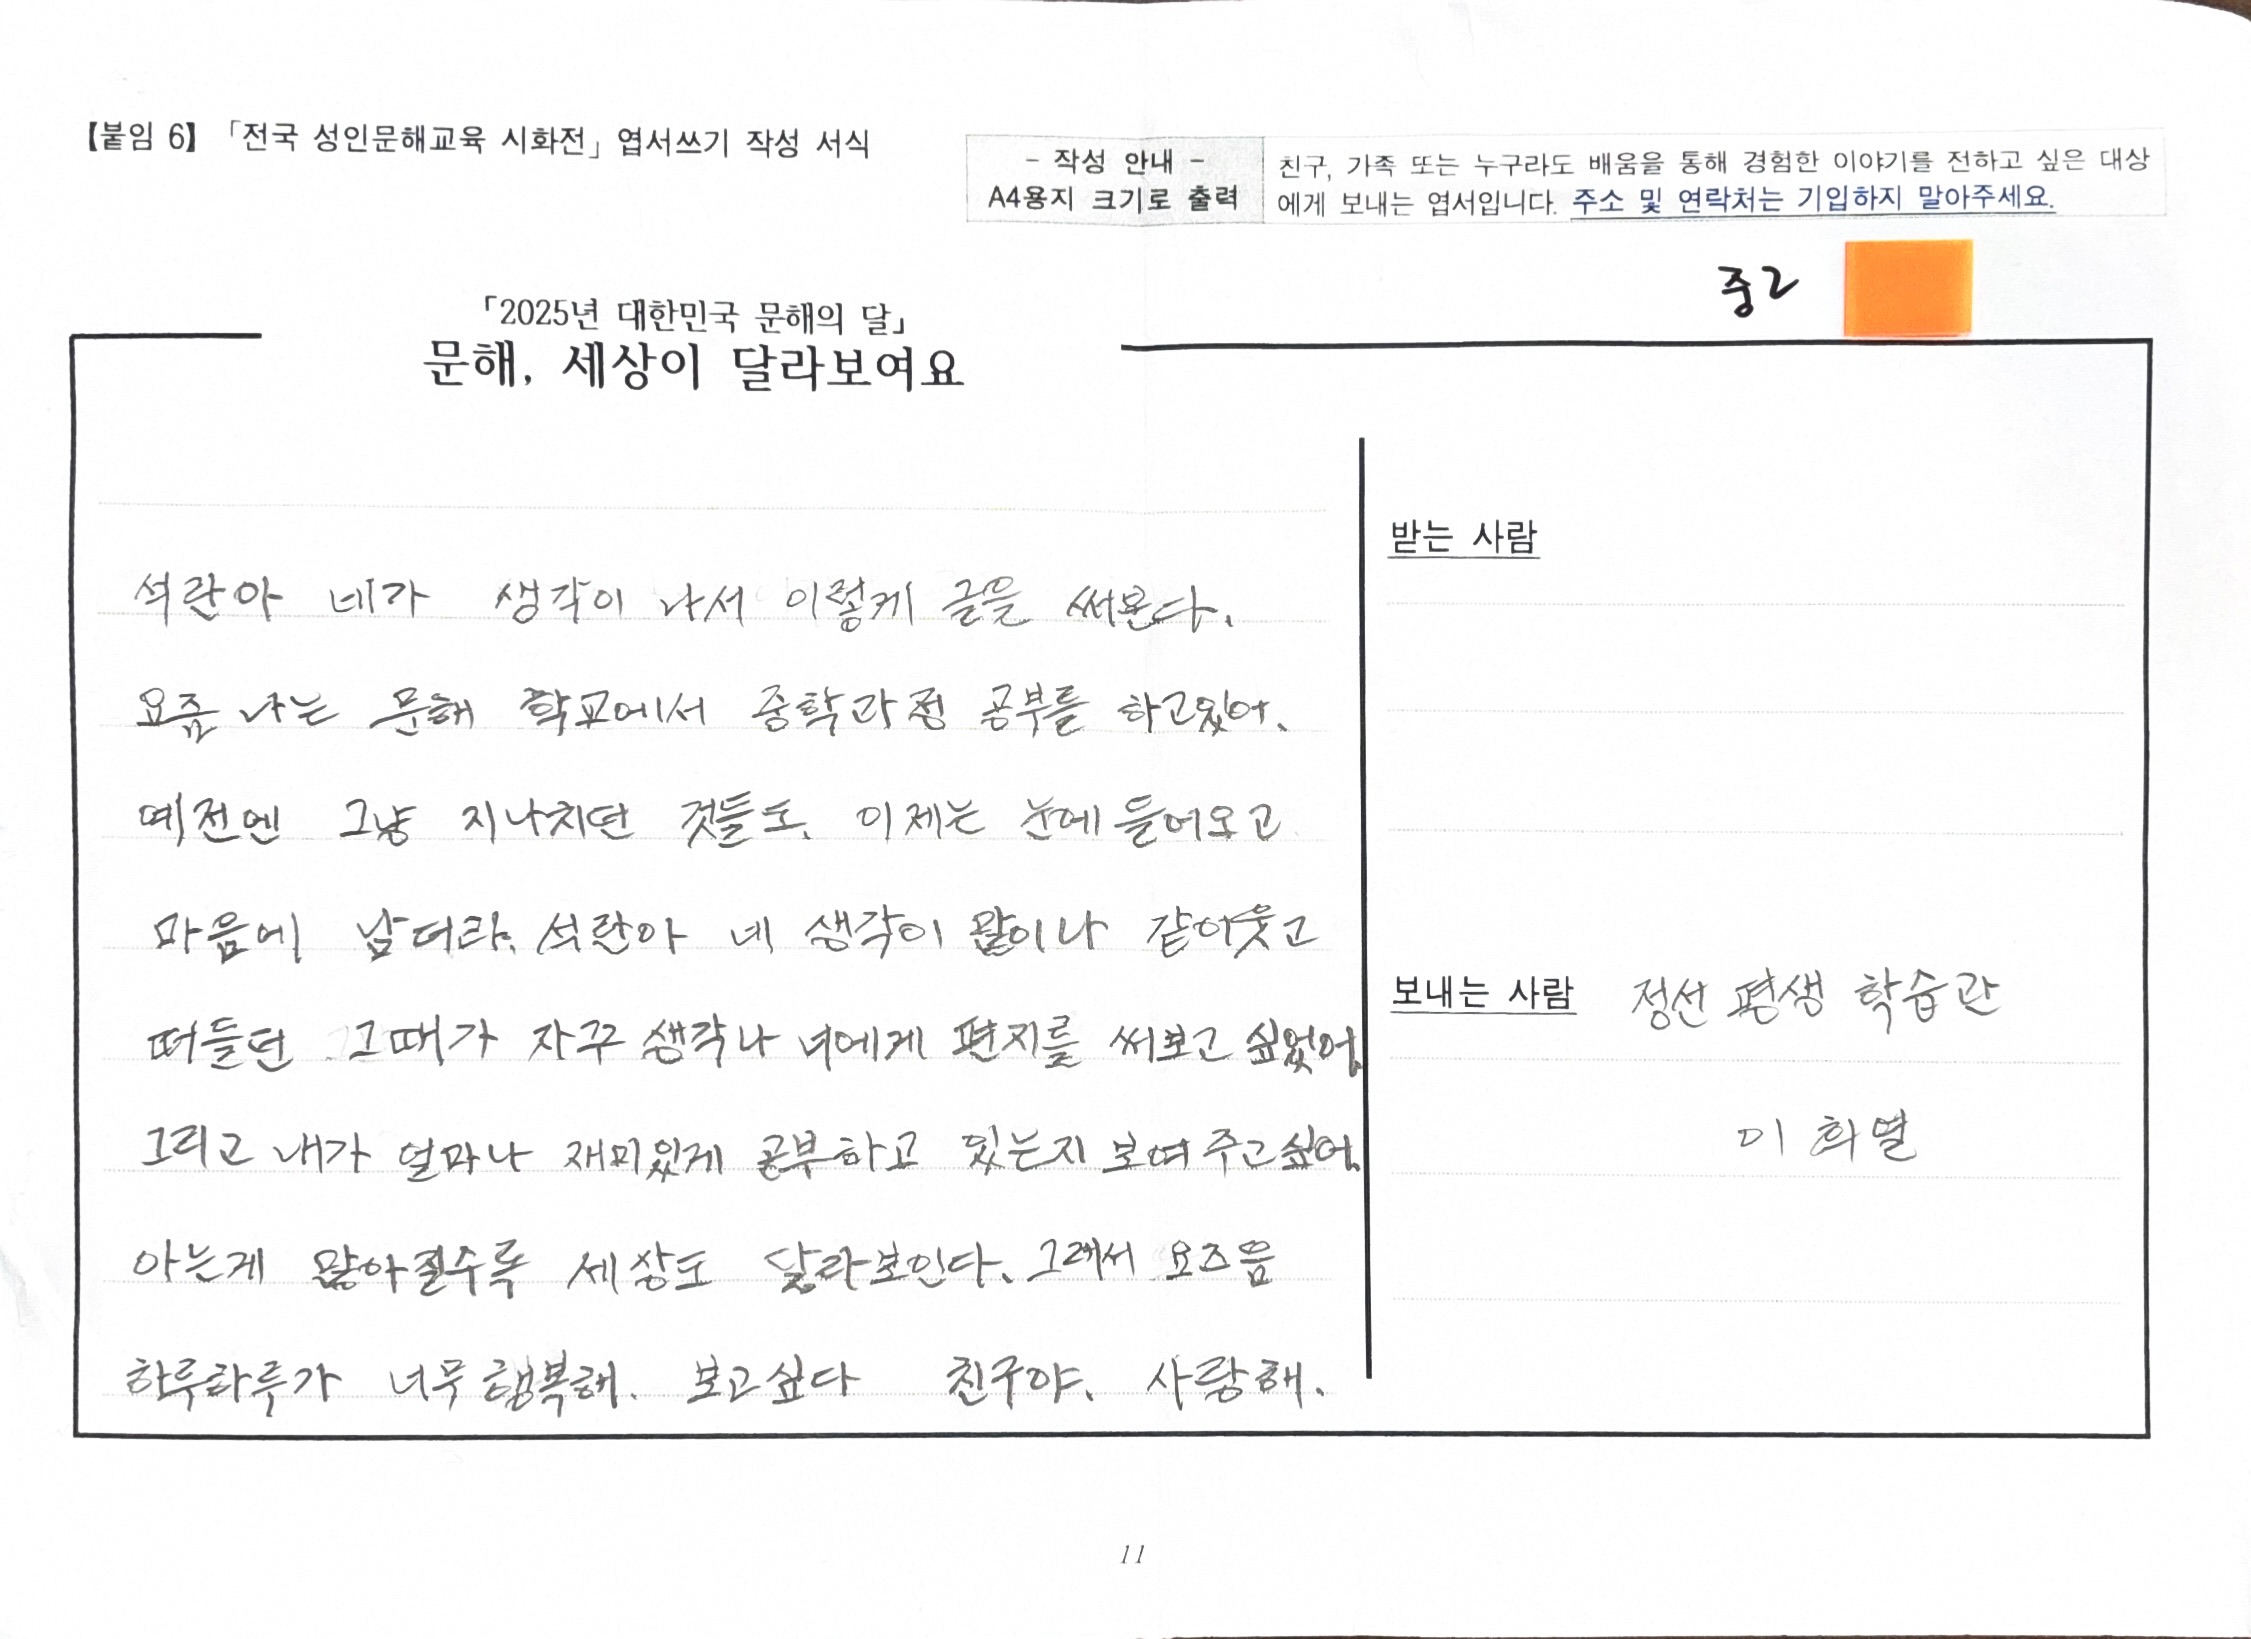 【붙임 6】 「전국 성인문해교육 시화전」 엽서쓰기 작성 서식
- 작성 안내 -
A4용지 크기로 출력
친구, 가족 또는 누구라도 배움을 통해 경험한 이야기를 전하고 싶은 대상
에게 보내는 엽서입니다. 주소 및 연락처는 기입하지 말아주세요.
중2
「2025년 대한민국 문해의 달」
문해, 세상이 달라보여요
석란아 네가 생각이 나서 이렇게 글을 써본다.
요즘 나는 문해 학교에서 중학과정 공부를 하고있어.
예전엔 그냥 지나치던 것들도. 이제는 눈에 들어오고
마음에 남더라. 석란아 네 생각이 많이나 같이웃고
떠들던 그때가 자꾸 생각나 너에게 편지를 써보고 싶었어.
그리고 내가 얼마나 재미있게 공부하고 있는지 보여주고싶어.
아는게 많아질수록 세상도 달라보인다. 그래서 요즈음
하루하루가 너무 행복해. 보고싶다 친구야. 사랑해.
받는 사람
보내는 사람 정선 평생 학습관
이 희열
11